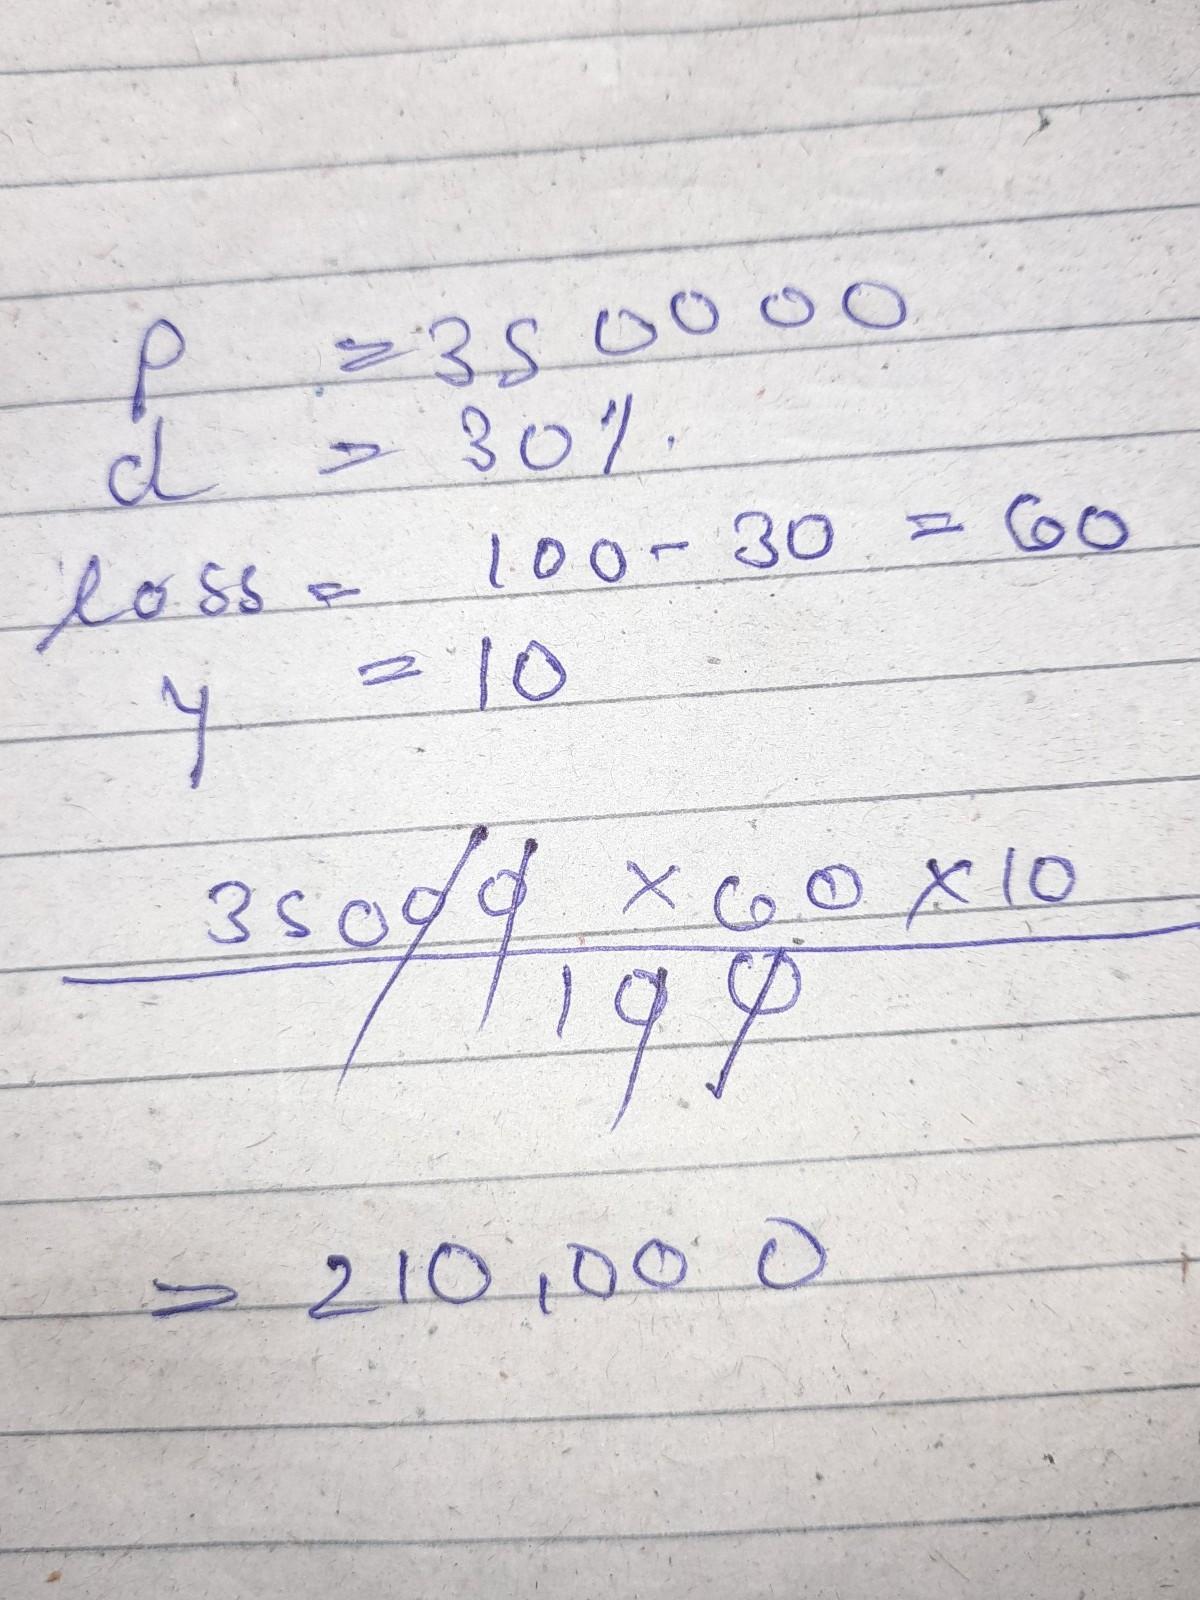 P = 350000
d = 30%.
loss = 100 - 30 = 60
y = 10
35000 × 60 × 10
100
= 210,000